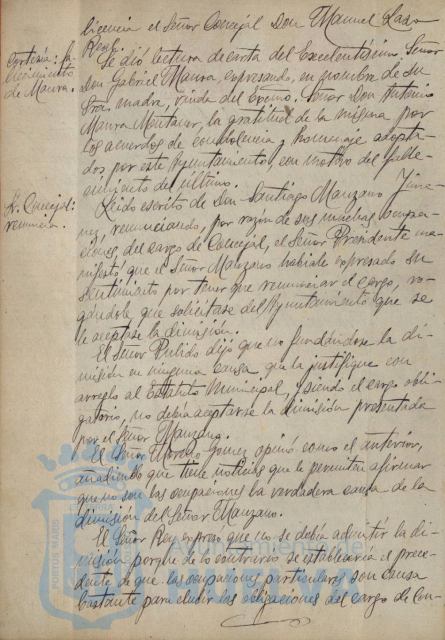 licencia el Señor Concejal Don Manuel Lazo
Real.
Cortesía: fa-
llecimiento
de Maura.
Se dió lectura de carta del Excelentísimo Señor
Don Gabriel Maura expresando, en nombre de su
Sra. madra, viuda del Excmo. Señor Don Antonio
Maura Montaner, la gratitud de la misma por
los acuerdos de condolencia y homenaje adopta-
dos por este Ayuntamiento, con motivo del falle-
cimiento del último.
Sr. Concejal:
renuncia.
Leido escrito de Don Santiago Manzano Jime-
nez, renunciando, por razón de sus muchas ocupa-
ciones, del cargo de Concejal, el Señor Presidente ma-
nifestó que el Señor Manzano habíale expresado su
sentimiento por tener que renunciar el cargo, ro-
gándole que solicitase del Ayuntamiento que se
le aceptase la dimisión.
El Señor Pulido dijo que no fundándose la di-
misión en ninguna causa que la justifique con
arreglo al Estatuto Municipal, y siendo el cargo obli-
gatorio, no debía aceptarse la dimisión presentada
por el Señor Manzano.
El Señor Moreno Gomez opinó como el anterior,
añadiendo que tiene noticias que le permiten afirmar
que no son las ocupaciones la verdadera causa de la
dimisión del Señor Manzano.
El Señor Rey expresó que no se debía admitir la di-
misión porque de lo contrario se establecería el prece-
dente de que las ocupaciones particulares son causa
bastante para eludir las obligaciones del cargo de Con-
PORTUS MARIS